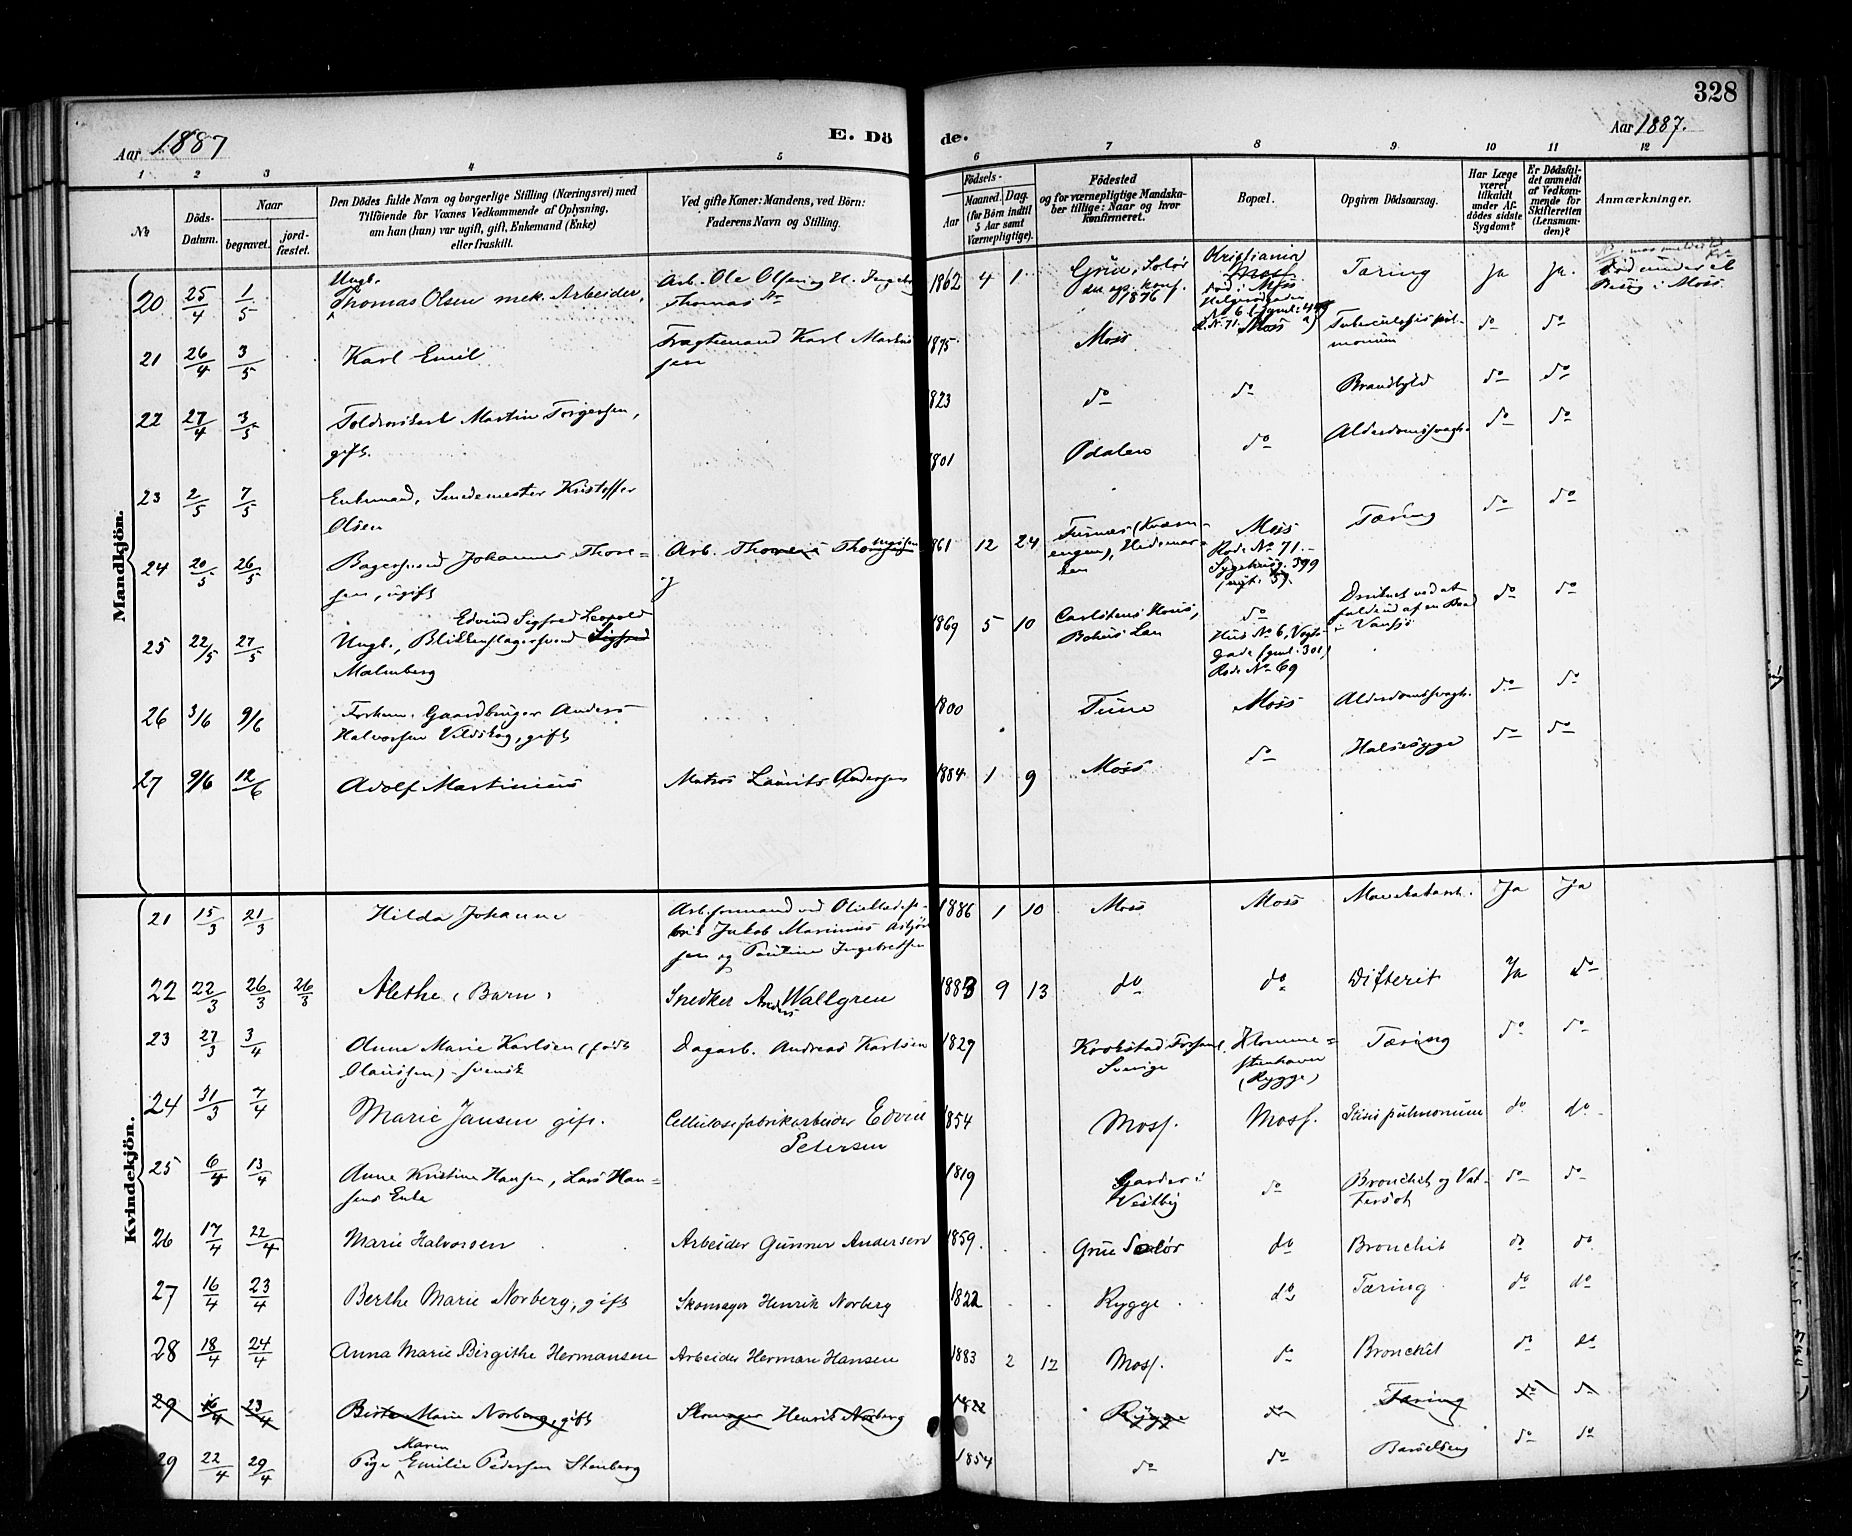 328
Aar 1887
E. Dö
de.
Aar 1887.
1 2 3 4 5 6 7 8 9 10 11 12
No
Döds-
Datum.
Naar
begravet.
jord-
fæstet.
Den Dödes fulde Navn og borgerlige Stilling (Næringsvei) med
Tilföiende for Voxnes Vedkommende af Oplysning,
om han (hun) var ugift, gift, Enkemand (Enke)
eller fraskilt.
Ved gifte Koner: Mandens, ved Börn:
Faderens Navn og Stilling.
Födsels-
Aar
Maaned. Dag.
(for Börn indtil
5 Aar samt
Værnepligtige).
Födested
og for værnepligtige Mandska-
ber tillige: Naar og hvor
konfirmeret.
Bopæl.
Opgiven Dödsaarsag.
Har Læge
været
tilkaldt
under Af-
dödes sidste
Sygdom?
Er Dödsfal-
det anmeldt
af Vedkom-
mende for
Skifteretten
(Lensman-
den)?
Anmærkninger.
Mandkjön.
20 25/4 1/5 Ungk. Thomas Olsen mek. Arbeider, Arb. Ole Olsen og H. Ingeborg
Thomas Dr 1862 4 1 Grue, Solör
1876 Kristiania
Moss
död i Moss
No 6
R. Nr. 71. Tæring Ja Ja. Död under et
Besøg i Moss
21 26/4 3/5 Karl Emil Fragtemand Karl Martin
sen 1875 Moss Moss Tuberculosis pul-
monum do do
22 27/4 3/5 Toldvisitort Martin Torgersen,
gift. 1823 do do Brandbyld do do
23 2/5 7/5 Enkemand, Smedemester Kristoffer
Olsen 1801 Odalen do Alderdomssvagh. do do
24 20/5 26/5 Bagersvend Johannes Thore-
sen, ugift Arb. 1861 12 24 Furnes (Kværn-
engen), Hedemar-
ken Moss
Rode No 71.
Sygehusg. 399 Tæring do do
25 22/5 27/5 Edvind Sigfred Leopold
Ungk., Blikkenslagersvend Sigfred
Malmberg 1869 5 10 Carlstens Hous,
Bohus Len do
Hus No 6, Vogts-
gade (gml. 301)
Rode No 69 Druknet ved at
falde ud af en Baad
i Vansjø do do
26 3/6 9/6 Forhen. Gaardbruger Anders
Halvorsen Vildskog, gift 1800 Tune Moss Alderdomssvagh. do do
27 9/6 12/6 Adolf Martinius Matros Laurits Andersen 1884 1 9 Moss do Halssyge do do
Kvindekjön.
21 15/3 21/3 Hilda Johanne Arb.formand ved Oliekladefa-
brik Jakob Marinius Asbjörn
sen og Pauline Ingebretsen 1886 1 10 Moss Moss Mavekatarrh. Ja Ja
22 22/3 26/3 26/3 Alethe (Barn) Snedker Anders Wallgren 1883 9 13 do do Difterit Ja do
23 27/3 3/4 Anne Marie Karlsen (född
Olaussen) - svensk Dagarb. Andreas Karlsen 1829 Krokstad Forsaml.
Sverige Klomme-
stenhaven
(Rygge) Tæring do do
24 31/3 7/4 Marie Jansen gift. Cellulosefabrikarbeider Edvin
Petersen 1854 Moss. Moss. Ptisis pulmonum do do
25 6/4 13/4 Anne Kristine Hansen, Lars Han-
sens Enke 1819 Garder i
Vestby do Bronchit og Vat-
tersot do do
26 17/4 22/4 Marie Halvorsen Arbeider Gunner Andersen 1859. Grue Solør do Bronchit do do
27 16/4 23/4 Berthe Marie Norberg, gift Skomager Henrik Norberg 1822 Rygge do Tæring do do
28 18/4 24/4 Anna Marie Birgithe Hermansen Arbeider Herman Hansen 1883 2 12 Moss. do Bronchit do do
29 16/4 23/4 Birte Marie Norberg, gift Skomager Henrik Norberg 1822 Rygge do Tæring do do
29 22/4 29/4 Pige Maren Emilie Pedersen Stenberg 1854 do do Barselseng do do